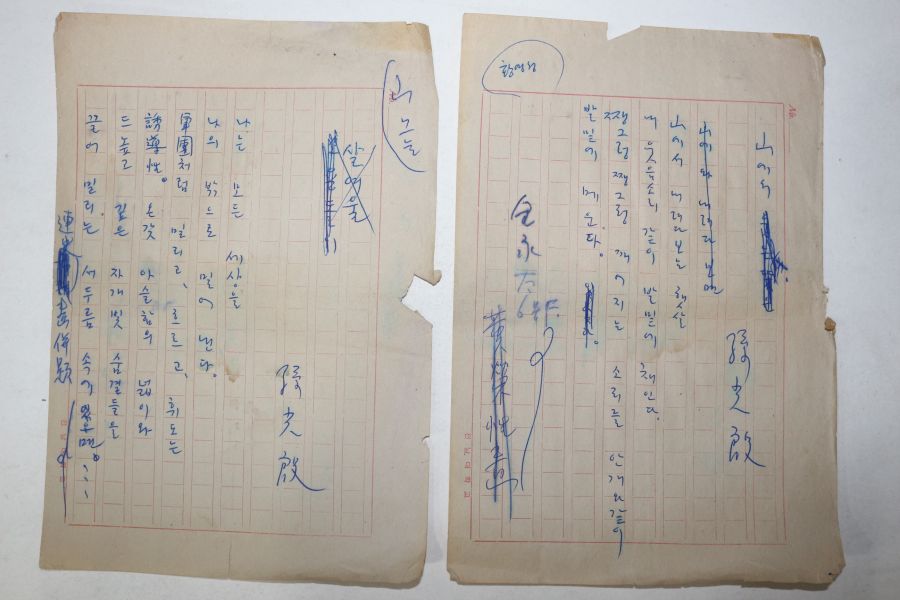 황영성
山에서
孫光殷
山에 와 내려다 보면
山에서 내려다보는 햇살
내 웃음소리 같이 발밑에 채인다.
쨍그렁 쨍그렁 깨어지는 소리를 안개와 같이
발밑에 메운다.
黃榮性画
살여울
孫光殷
나는 모든 세상을
나의 밖으로 밀어 낸다.
軍團처럼 밀리고, 흐르고, 휘도는
誘導性。온갖 아슬함의 넓이와
드높고 깊은 자개빛 숨결들을
끌어 밀리는 서두름 속
併題